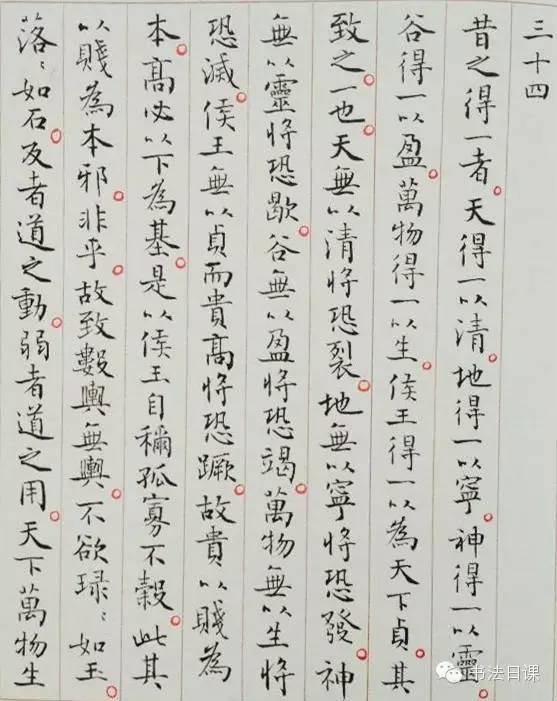 三十四
昔之得一者。天得一以清。地得一以寧。神得一以靈。
谷得一以盈。萬物得一以生。侯王得一以為天下貞。其
致之一也。天無以清將恐裂。地無以寧將恐發。神
無以靈將恐歇。谷無以盈將恐竭。萬物無以生將
恐滅。侯王無以貞而貴高將恐蹶。故貴以賤為
本。高必以下為基。是以侯王自稱孤寡不穀。此其
以賤為本邪。非乎。故致數輿無輿。不欲琭〻如玉。
落〻如石。反者道之動。弱者道之用。天下萬物生
书法日课